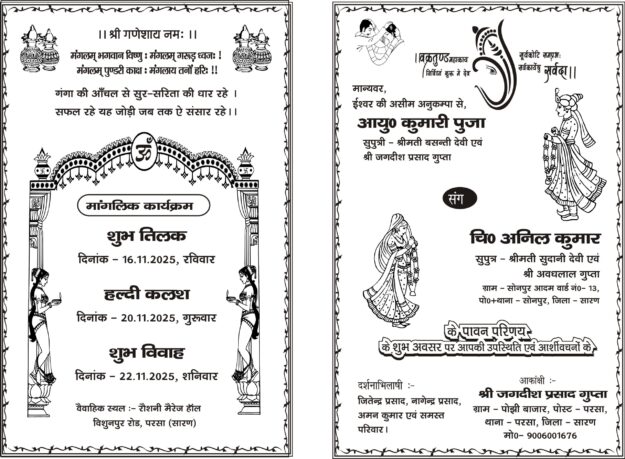 ।। श्री गणेशाय नमः ।।
मंगलम् भगवान विष्णु : मंगलम् गरूड़ ध्वजः !
मंगलम् पुण्डरी काक्षः मंगलाय तनों हरिः !!
गंगा की आँचल से सुर-सरिता की धार रहे ।
सफल रहे यह जोड़ी जब तक ऐ संसार रहे ।।
ॐ
मांगलिक कार्यक्रम
शुभ तिलक
दिनांक - 16.11.2025, रविवार
हल्दी कलश
दिनांक - 20.11.2025, गुरूवार
शुभ विवाह
दिनांक - 22.11.2025, शनिवार
वैवाहिक स्थल :- रौशनी मैरेज हॉल
विशुनपुर रोड, परसा (सारण)
।।वक्रतुण्ड महाकाय
सूर्यकोटि समप्रभः
निर्विघ्नं कुरू मे देव
सर्वकार्येषु सर्वदा।।
मान्यवर,
ईश्वर की असीम अनुकम्पा से,
आयु० कुमारी पुजा
सुपुत्री - श्रीमती बसन्ती देवी एवं
श्री जगदीश प्रसाद गुप्ता
संग
चि० अनिल कुमार
सुपुत्र - श्रीमती सुदानी देवी एवं
श्री अवधलाल गुप्ता
ग्राम - सोनपुर आदम वार्ड नं०- 13,
पो०+थाना - सोनपुर, जिला - सारण
के पावन परिणय
के शुभ अवसर पर आपकी उपस्थिति एवं आर्शीवचनों के
दर्शनाभिलाषी :-
जितेन्द्र प्रसाद, नागेन्द्र प्रसाद,
अमन कुमार एवं समस्त
परिवार।
आकांक्षी :-
श्री जगदीश प्रसाद गुप्ता
ग्राम - पोझी बाजार, पोस्ट - परसा,
थाना - परसा, जिला - सारण
मो०- 9006001676